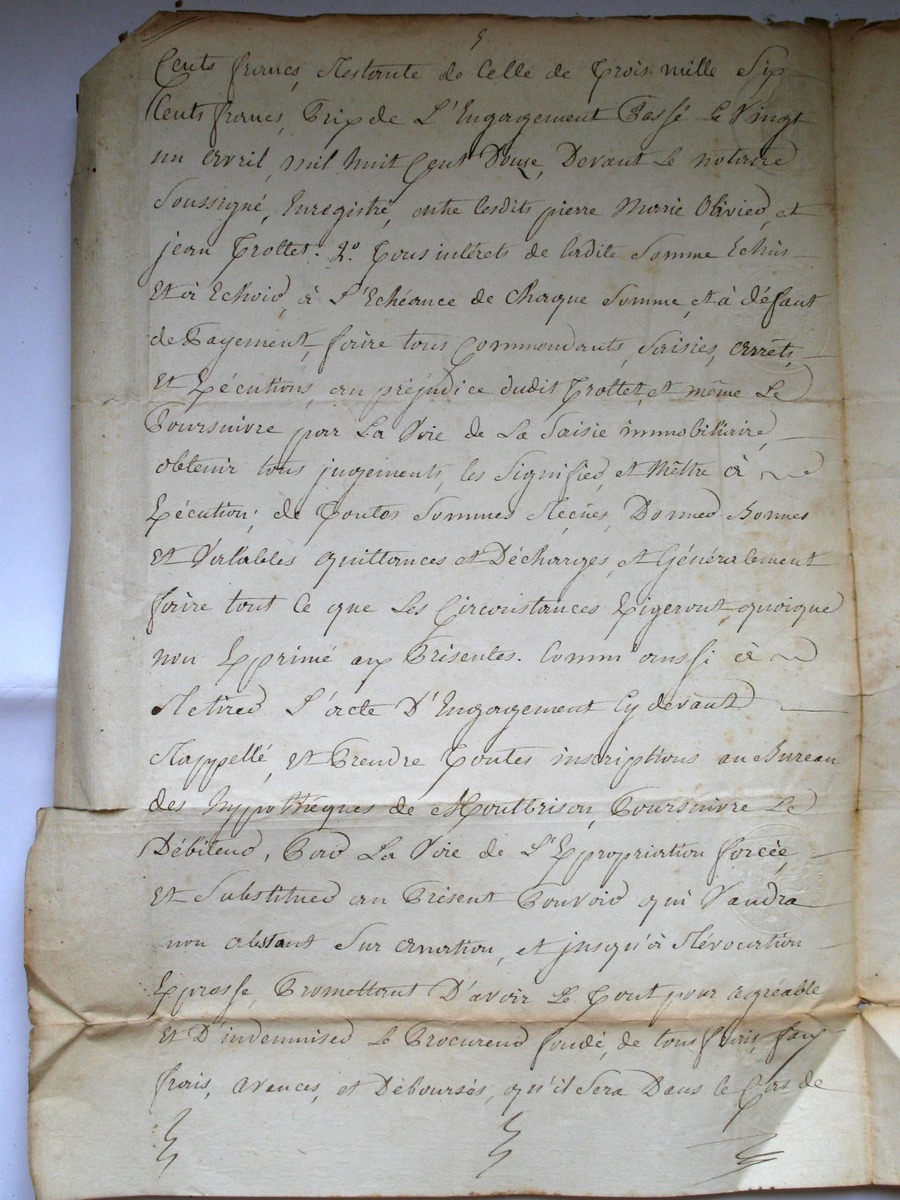 Cents francs, Restante de Celle de Trois mille Six
Cents francs, Prix de L'Engagement Passé Le Vingt
un avril, mil huit Cent Douze, Devant Le notaire
Soussigné, Enregistré, entre lesdits pierre Marie Olivier, et
jean Trottet. 2.° Tous intérets de ladite Somme Echus
Et à Echoir, à L'Echéance de Chaque Somme, et à défaut
de Payement, faire tous Commandants, Saisies, arrêts,
Et Exécutions, au préjudice dudit Trottet, et même Le
Poursuivre par La Voie de La Saisie immobiliaire,
obtenir tous jugements, les Signifier, et Mêttre à
Exécution; de Toutes Sommes Reçües, Donner Bonnes
Et Valables quittances et Décharges, et Généralement
faire tout Ce que Les Circonstances Exigeront, quoique
non Exprimé aux Présentes. Comm'aussi à
Retirer L'acte D'Engagement Cydevant
Rappellé, et Prendre Toutes inscriptions au Bureau
des hypothèques de Montbrison, Poursuivre Le
Débiteur, Par La Voie de L'Expropriation forcée,
Et Substituer au Présent Pouvoir qui Vaudra
non obstant Sur anation, et jusqu'à Révocation
Expresse, Promettant D'avoir Le Tout pour agréable
Et D'indemniser Le Procureur fondé, de tous frais, faux
frais, avances, et Déboursés, qu'il Sera Dans le Cas de